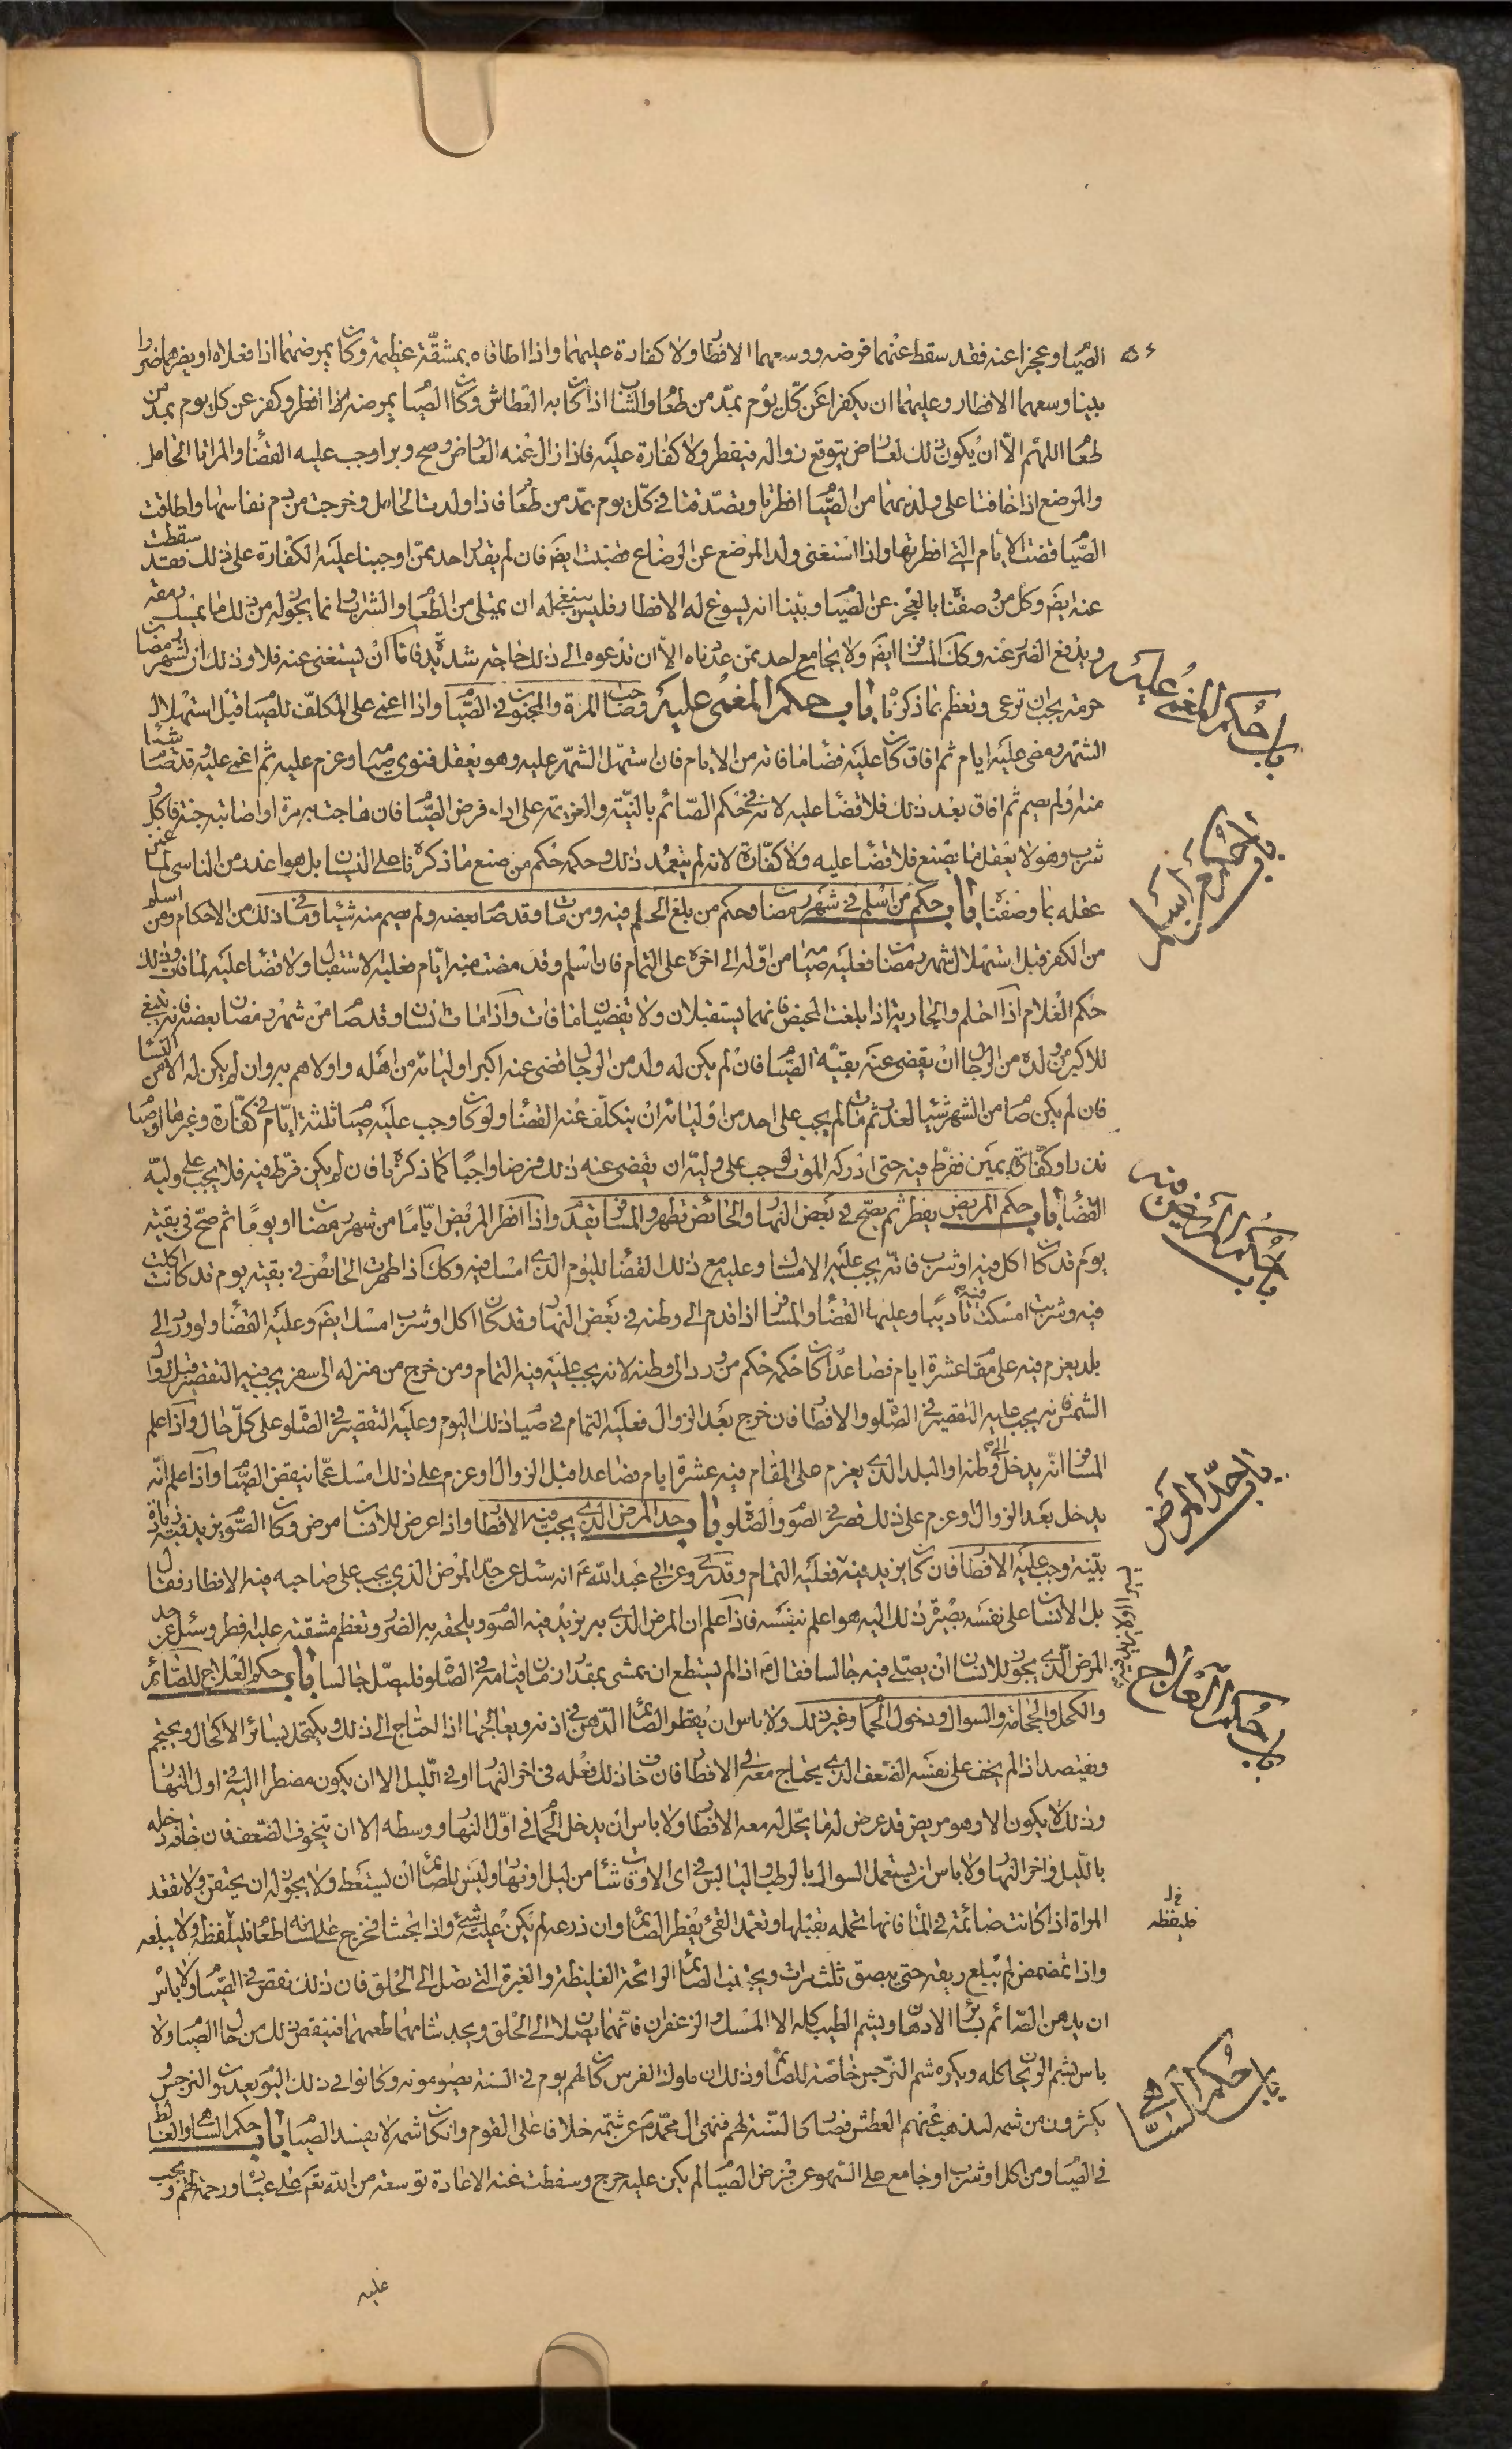 ٥٤
الصيام وعجزا عنه فقد سقط عنهما فرضه ووسعهما الافطار ولا كفارة عليهما واذا اطاقاه بمشقة عظيمة وكان يمرضهما اذا فعلاه او يضرهما ضررا
بينا وسعهما الافطار وعليهما ان يكفرا عن كل يوم بمد من طعام والشاب اذا كان به العطاش وكان الصيام يمرضه افطر وكفر عن كل يوم بمد من
طعام اللهم الا ان يكون ذلك لعارض يتوقع زواله فيفطر ولا كفارة عليه فاذا زال عنه العارض وصح وبرا وجب عليه القضاء والمراة الحامل
والمرضع اذا خافتا على ولديهما من الصيام افطرتا وتصدقتا في كل يوم بمد من طعام فاذا ولدت الحامل وخرجت من دم نفاسها واطاقت
الصيام قضت الايام التي افطرتها واذا استغنى ولد المرضع عن الرضاع قضت ايضا فان لم يقدر احد ممن اوجبنا عليه الكفارة على ذلك فقد سقطت
عنه ايضا وكل من وصفناه بالعجز عن الصيام وبينا انه يسوغ له الافطار فليس ينبغي له ان يمتلى من الطعام والشراب وانما يجوز له من ذلك ما يمسك رمقه
ويدفع الضرر عنه وكك المسافر ايضا ولا يجامع احد ممن عددناه الا ان تدعوه الى ذلك حاجة شديدة فاما ان يستغنى عنه فلا وذلك ان لشهر رمضان
حرمة يجب ان ترعى وتعظم بما ذكرناه باب حكم المغمى عليه وصاحب المرة والمجنون في الصيام واذا اغمى على المكلف للصيام قبل استهلال
الشهر ومضى عليه ايام ثم افاق كان عليه قضاء ما فاته من الايام فان استهل الشهر عليه وهو يعقل فنوى صيامه وعزم عليه ثم اغمى عليه وقد صام شيئا
منه او لم يصم ثم افاق بعد ذلك فلا قضاء عليه لانه في حكم الصائم بالنية والعزيمة على اداء فرض الصيام فان هاجت به مرة او اصابته جنة فاكل او
شرب وهو لا يعقل بما يصنع فلا قضاء عليه ولا كفارة لانه لم يتعمد ذلك وحكمه حكم من صنع ما ذكرناه على النسيان بل هو اعذر من الناسي لما غير
عقله بما وصفناه باب حكم من اسلم في شهر رمضان وحكم من بلغ الحلم فيه ومن مات وقد صام بعضه ولم يصم منه شيئا وما في ذلك من الاحكام ومن اسلم
من الكفر قبل استهلال شهر رمضان فعليه صيامه من اوله الى اخره على التمام فان اسلم وقد مضت منه ايام فعليه الاستقبال ولا قضاء عليه لما فات وكذلك
حكم الغلام اذا احتلم والجارية اذا بلغت المحيض فانهما يستقبلان ولا يقضيان ما فات واذا مات انسان وقد صام من شهر رمضان بعضه فانه ينبغي
للاكبر من ولده من الرجال ان يقضى عنه بقية الصيام فان لم يكن له ولد من الرجال قضى عنه اكبر اوليائه من اهله واولاهم به وان لم يكن له الا من النساء
فان لم يكن صام من الشهر شيئا لعذر ثم مات لم يجب على احد من اوليائه ان يتكلف عنه القضاء ولو كان وجب عليه صيام ثلثة ايام في كفارة وغيرها او صيام
نذر او كفارة يمين ففرط فيه حتى ادركه الموت لوجب على وليه ان يقضى عنه ذلك فرضا واجبا كما ذكرناه فان لم يكن فرط فيه فلا يجب على وليه
القضاء باب حكم المريض يفطر ثم يصح في بعض النهار والحائض تطهر والمسافر يقدم واذا افطر المريض اياما من شهر رمضان او يوما ثم صح في بقية
يوم قد كان اكل فيه او شرب فانه يجب عليه الامساك وعليه مع ذلك القضاء لليوم الذي امسك فيه وكك اذا طهرت الحائض في بقية يوم قد كانت اكلت
فيه وشربت امسكت فيه تاديبا وعليها القضاء والمسافر اذا قدم الى وطنه في بعض النهار وقد كان اكل او شرب امسك ايضا وعليه القضاء ولو ورد الى
بلد يعزم فيه على مقام عشرة ايام فصاعدا كان حكمه حكم من ورد الى وطنه لانه يجب عليه فيه التمام ومن خرج من منزله الى سفر يجب فيه التقصير قبل زوال
الشمس فانه يجب عليه التقصير في الصلوة والافطار فان خرج بعد الزوال فعليه التمام في صيام ذلك اليوم وعليه التقصير في الصلوة على كل حال واذا علم
المسافر انه يدخل الى وطنه او البلد الذي يعزم على المقام فيه عشرة ايام فصاعدا قبل الزوال او عزم على ذلك امسك عما ينقض الصيام واذا علم انه
يدخل بعد الزوال وعزم على ذلك قصر في الصوم والصلوة باب حد المرض الذي يجب فيه الافطار واذا عرض للانسان مرض وكان الصوم يزيد فيه زيادة
بينة وجب عليه الافطار فان كان يزيد فيه فعليه التمام وقد روى عن ابي عبد الله ع انه سئل عن حد المرض الذي يجب على صاحبه فيه الافطار فقال
بل الانسان على نفسه بصيرة ذلك اليه هو اعلم بنفسه فاذا علم ان المرض الذي به يزيد فيه الصوم ويلحقه به الضرر وتعظم مشقته عليه افطر وسئل عن حد
المرض الذي يجوز للانسان ان يصلي فيه جالسا فقال ع اذا لم يستطع ان يمشى بمقدار زمان قيامه في الصلوة فليصل جالسا باب حكم العلاج للصائم
والكحل والحجامة والسواك ودخول الحمام وغير ذلك ولا باس ان يقطر الصائم الدهن في اذنه ويعالجها اذا احتاج الى ذلك ويكتحل بسائر الاكحال ويحتجم
ويفتصد اذا لم يخف على نفسه الضعف الذي يحتاج معه الى الافطار فان خاف ذلك فعله في اخر النهار او في الليل الا ان يكون مضطرا اليه في اول النهار
وذلك لا يكون الا وهو مريض قد عرض له ما يحل له معه الافطار ولا باس ان يدخل الحمام في اول النهار ووسطه الا ان يتخوف الضعف فان خافه دخله
بالليل واخر النهار ولا باس ان يستعمل السواك بالرطب واليابس في اى الاوقات شاء من ليل او نهار وليس للصائم ان يستعط ولا يجوز له ان يحتقن ولا تقعد
المراة اذا كانت صائمة في الماء فانها تحمله بقبلها وتعمد القئ يفطر الصائم وان ذرعه لم يكن عليه شئ واذا تجشا فخرج على لسانه طعام فليلفظه ولا يبلعه
واذا تمضمض لم يبلع ريقه حتى يبصق ثلث مرات ويجتنب الصائم الرائحة الغليظة والغبرة التي تصل الى الحلق فان ذلك نقص في الصيام ولا باس
ان يدهن الصائم بسائر الادهان ويشم الطيب كله الا المسك والزعفران فانهما يصلان الى الحلق ويجد شامهما طعمهما فينقض ذلك من حال الصيام ولا
باس بشم الريحان كله ويكره شم النرجس خاصة للصائم وذلك ان ملوك الفرس كان لهم يوم في السنة يصومونه وكانوا في ذلك اليوم يعدون النرجس و
يكثرون من شمه ليذهب عنهم العطش فصار كالسنة لهم فنهى ال محمد ع عن شمه خلافا على القوم وان كان شمه لا يفسد الصيام باب حكم الساهي والغالط
في الصيام ومن اكل او شرب او جامع على السهو عن فرض الصيام لم يكن عليه حرج وسقطت عنه الاعادة توسعة من الله تعم على عباده ورحمة لهم ويجب
عليه
باب حكم المغمى عليه
باب حكم من اسلم
باب حكم المريض
باب حد المرض
يسيرا او لا يزيد فيه
باب حكم العلاج
فليلفظه
باب حكم الساهي